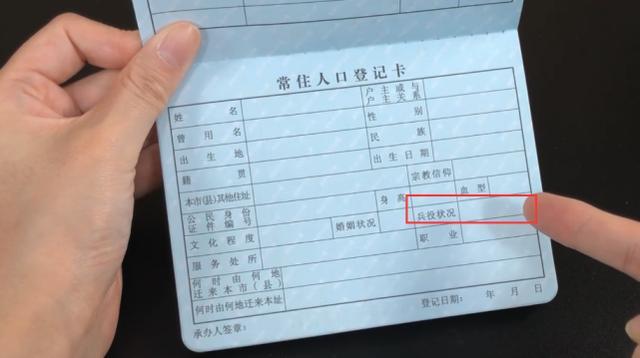 常住人口登记卡
姓名 户主或与户主关系
曾用名 性别
出生地 民族
籍贯 出生日期
本市(县)其他住址 宗教信仰
公民身份证件编号 身高 血型
文化程度 婚姻状况 兵役状况
服务处所 职业
何时由何地迁来本市(县)
何时由何地迁来本址
登记日期: 年 月 日
承办人签章: